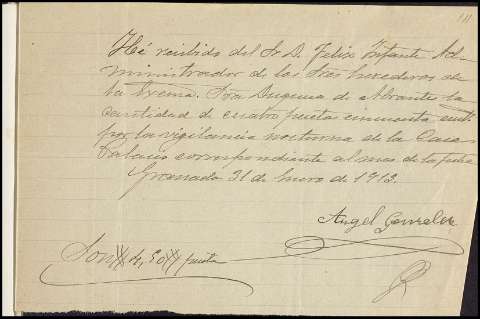 111
He recibido del Sr. D. Felix Infante Ad-
ministrador de los Sres herederos de
la Excma. Sra Duquesa de Abrante la
cantidad de cuatro pesetas cincuenta cent
por la vigilancia nocturna de la Casa
Palacio correspondiente al mes de la fecha
Granada 31 de Enero de 1913.
Angel Gonzalez
Son # 4,50 # pesetas